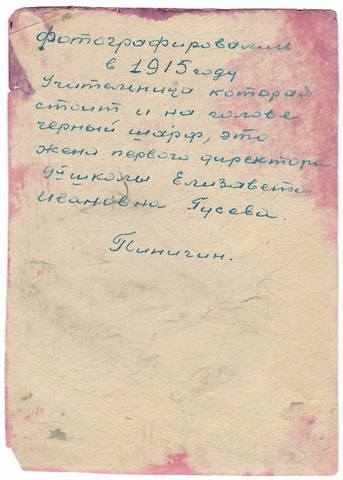 Фотографировались
в 1915 году
Учительница которая
стоит и на голове
черный шарф, это
жена первого директора
школы Елизавета
Ивановна Гусева.
Пинигин.